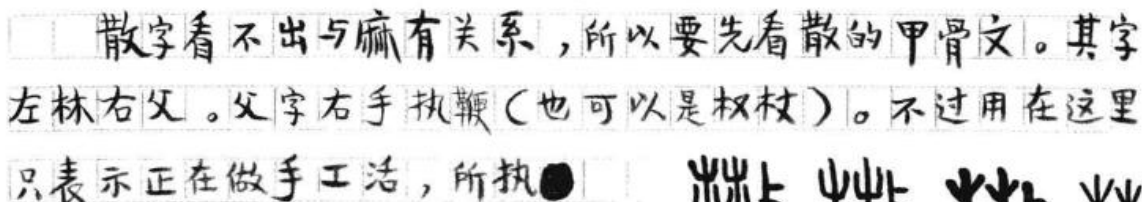 散字看不出与麻有关系，所以要先看散的甲骨文。其字
左林右父。父字右手执鞭（也可以是权杖）。不过用在这里
只表示正在做手工活，所执